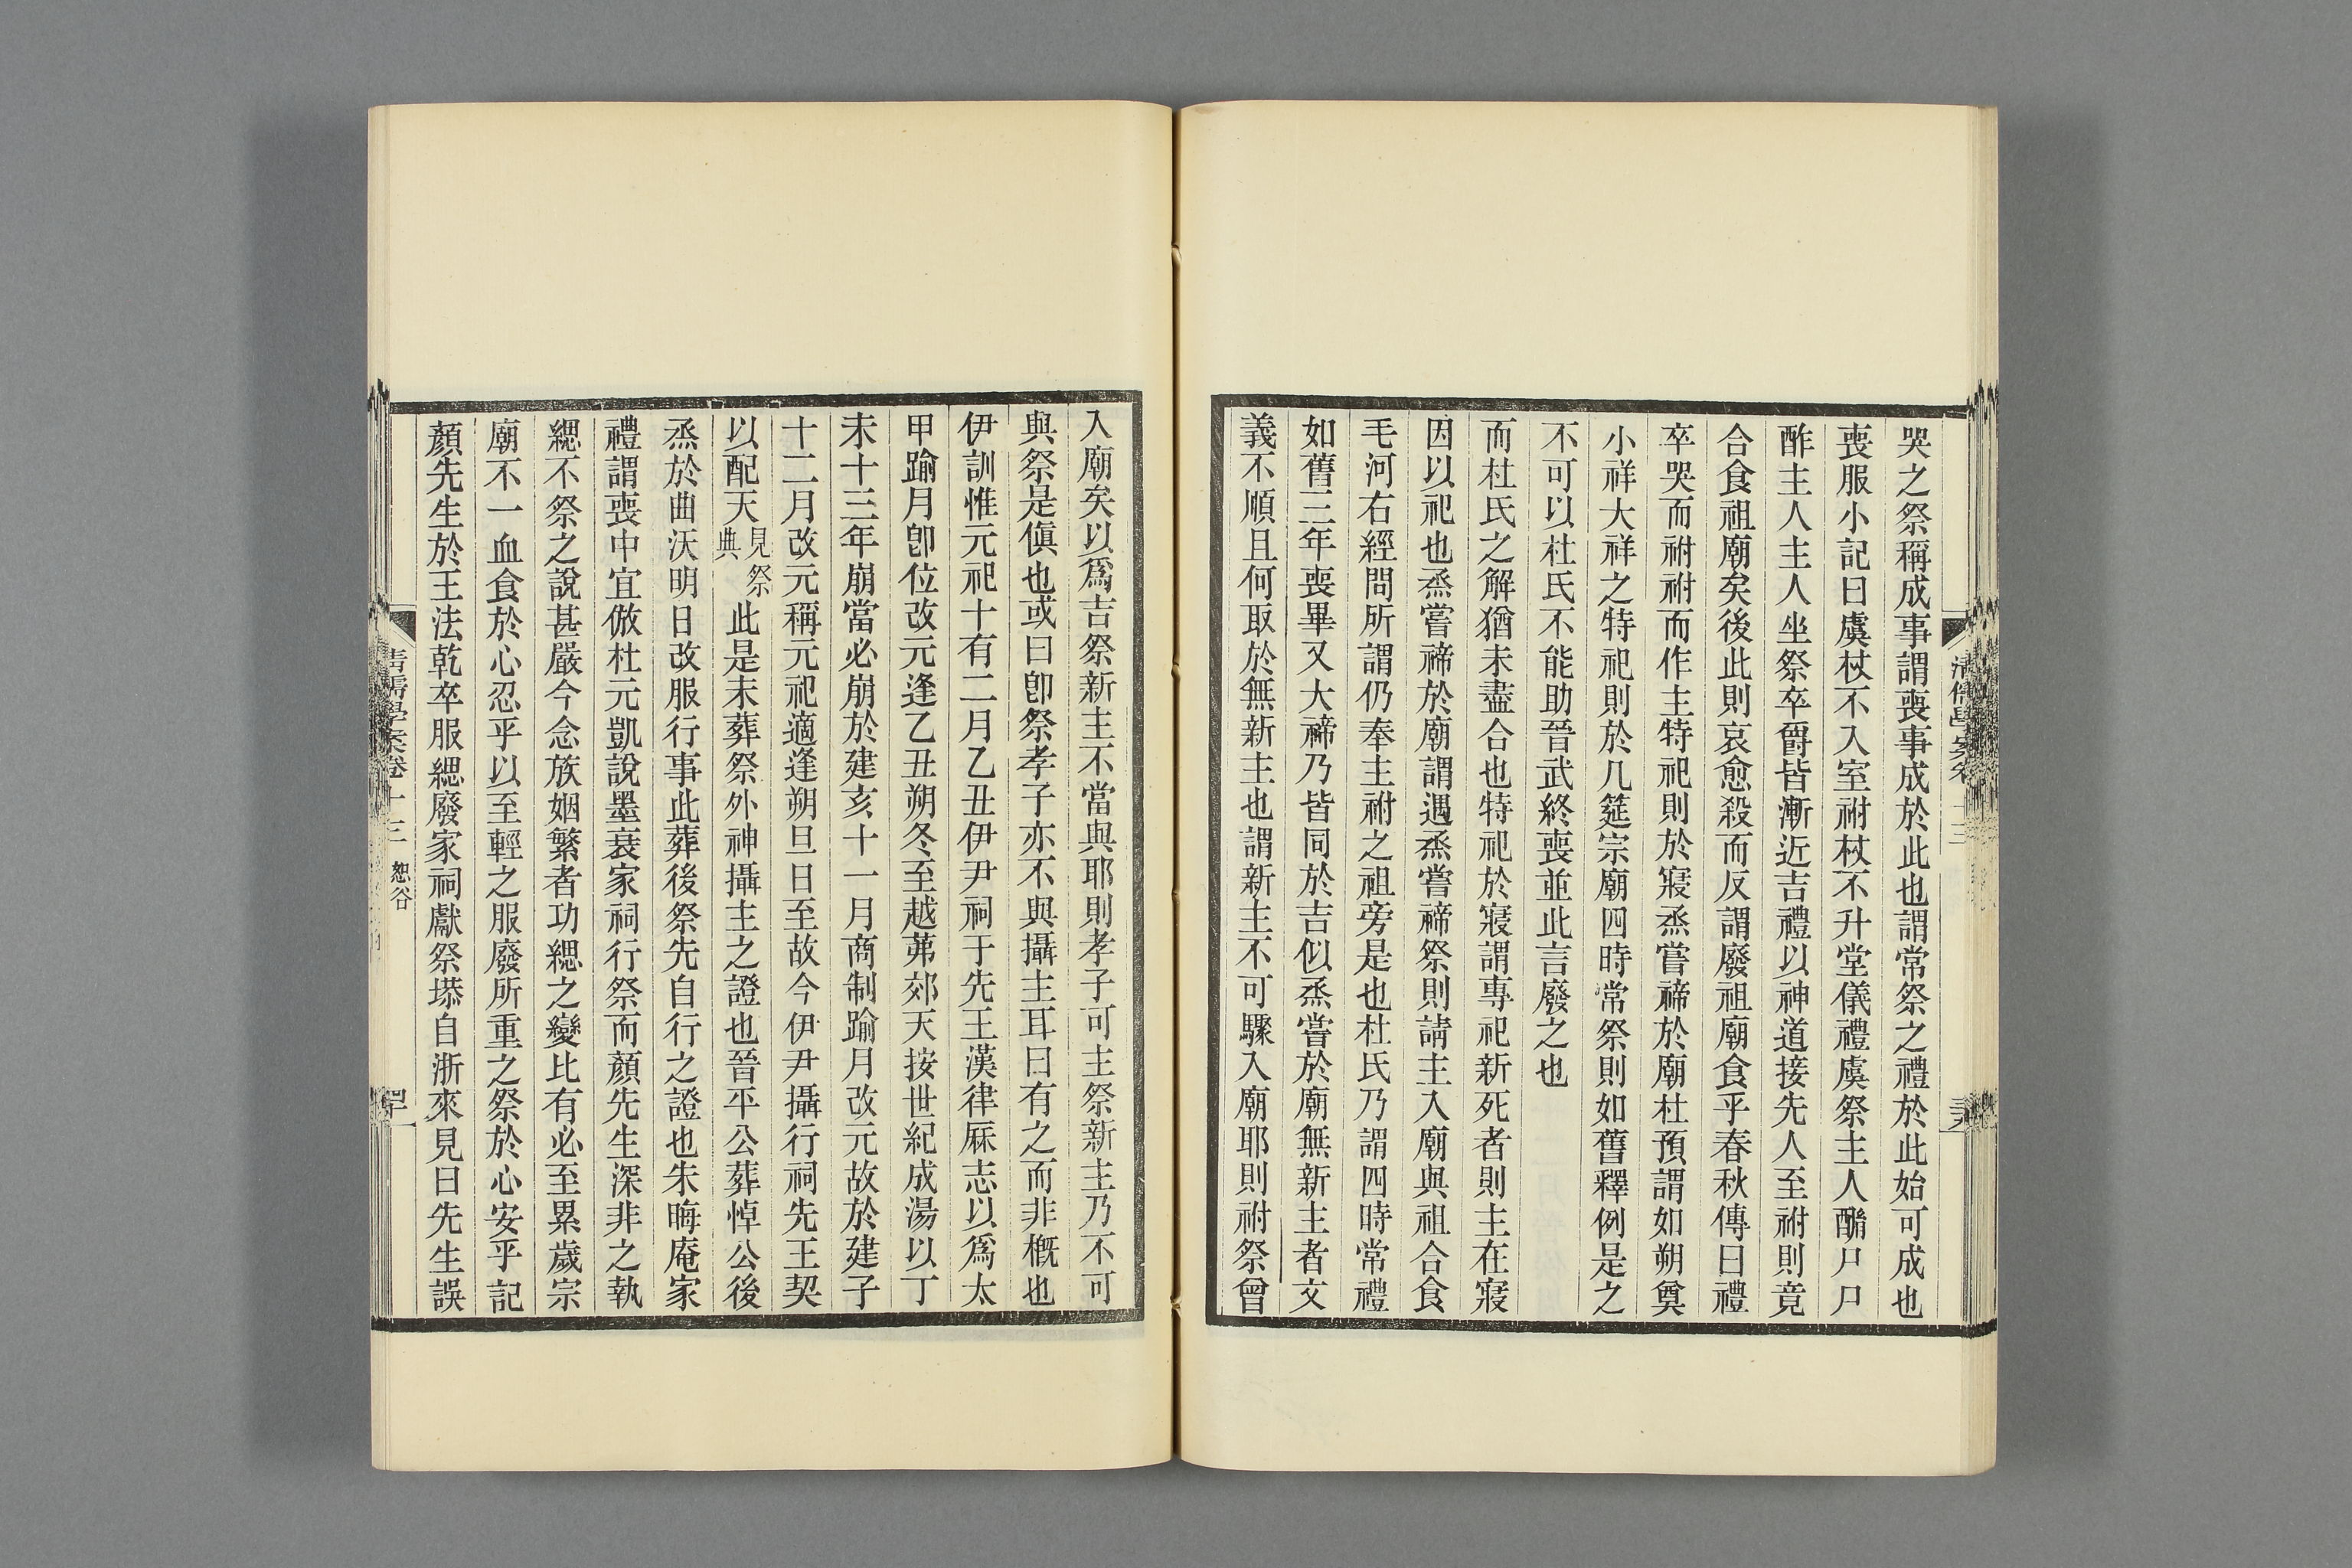 哭之祭稱成事謂喪事成於此也謂常祭之禮於此始可成也
喪服小記曰虞杖不入室祔杖不升堂儀禮虞祭主人酳尸尸
酢主人主人坐祭卒爵皆漸近吉禮以神道接先人至祔則竟
合食祖廟矣後此則哀愈殺而反謂廢祖廟食乎春秋傳曰禮
卒哭而祔祔而作主特祀則於寢烝嘗禘於廟杜預謂如朔奠
小祥大祥之特祀則於几筵宗廟四時常祭則如舊釋例是之
不可以杜氏不能助晉武終喪並此言廢之也
而杜氏之解猶未盡合也特祀於寢謂專祀新死者則主在寢
因以祀也烝嘗禘於廟謂遇烝嘗禘祭則請主入廟與祖合食
毛河右經問所謂仍奉主祔之祖旁是也杜氏乃謂四時常禮
如舊三年喪畢又大禘乃皆同於吉似烝嘗於廟無新主者文
義不順且何取於無新主也謂新主不可驟入廟耶則祔祭曾
入廟矣以爲吉祭新主不當與耶則孝子可主祭新主乃不可
與祭是傎也或曰卽祭孝子亦不與攝主耳曰有之而非概也
伊訓惟元祀十有二月乙丑伊尹祠于先王漢律厤志以爲太
甲踰月卽位改元逢乙丑朔冬至越茀郊天按世紀成湯以丁
未十三年崩當必崩於建亥十一月商制踰月改元故於建子
十二月改元稱元祀適逢朔旦日至故今伊尹攝行祠先王契
以配天見祭典此是未葬祭外神攝主之證也晉平公葬悼公後
烝於曲沃明日改服行事此葬後祭先自行之證也朱晦庵家
禮謂喪中宜倣杜元凱說墨衰家祠行祭而顏先生深非之執
緦不祭之說甚嚴今念族姻繁者功緦之變比有必至累歲宗
廟不一血食於心忍乎以至輕之服廢所重之祭於心安乎記
顏先生於王法乾卒服緦廢家祠獻祭塨自浙來見曰先生誤
清儒學案卷十三 恕谷